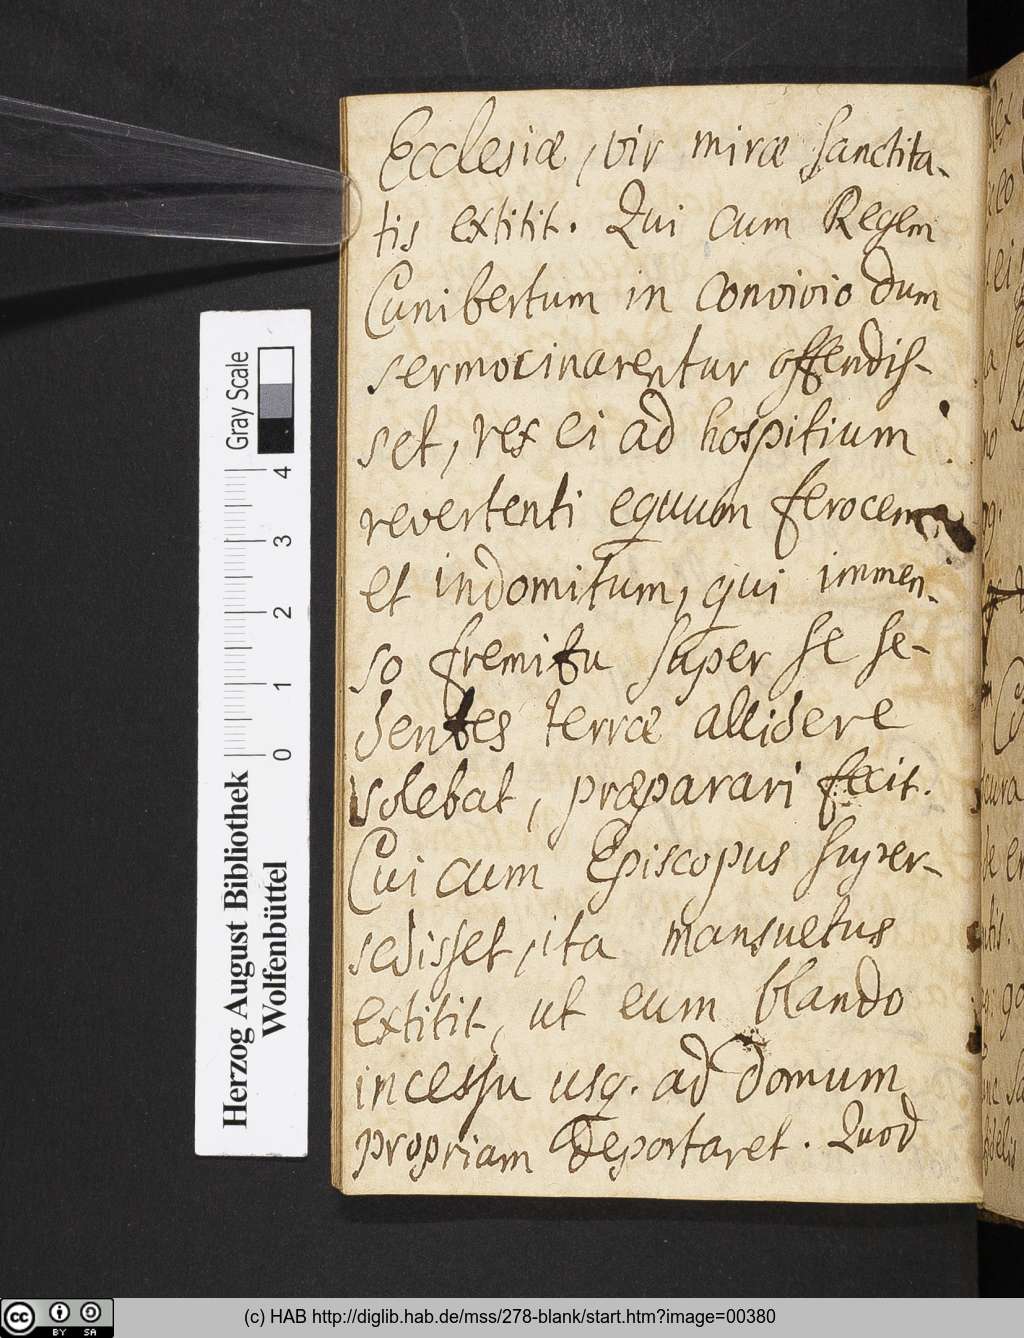 Ecclesiæ, vir miræ sanctita-
tis extitit. Qui cum Regem
Cunibertum in convivio dum
sermocinarentur offendis-
set, rex ei ad hospitium
revertenti equum ferocem
et indomitum, qui immen-
so fremitu super se se-
dentes terræ allidere
solebat, præparari fecit.
Cui cum Episcopus super-
sedisset, ita mansuetus
extitit, ut eum blando
incessu usq. ad domum
propriam deportaret. Quod
Gray Scale
4
3
2
1
0
Herzog August Bibliothek
Wolfenbüttel
(c) HAB http://diglib.hab.de/mss/278-blank/start.htm?image=00380
cc
BY SA